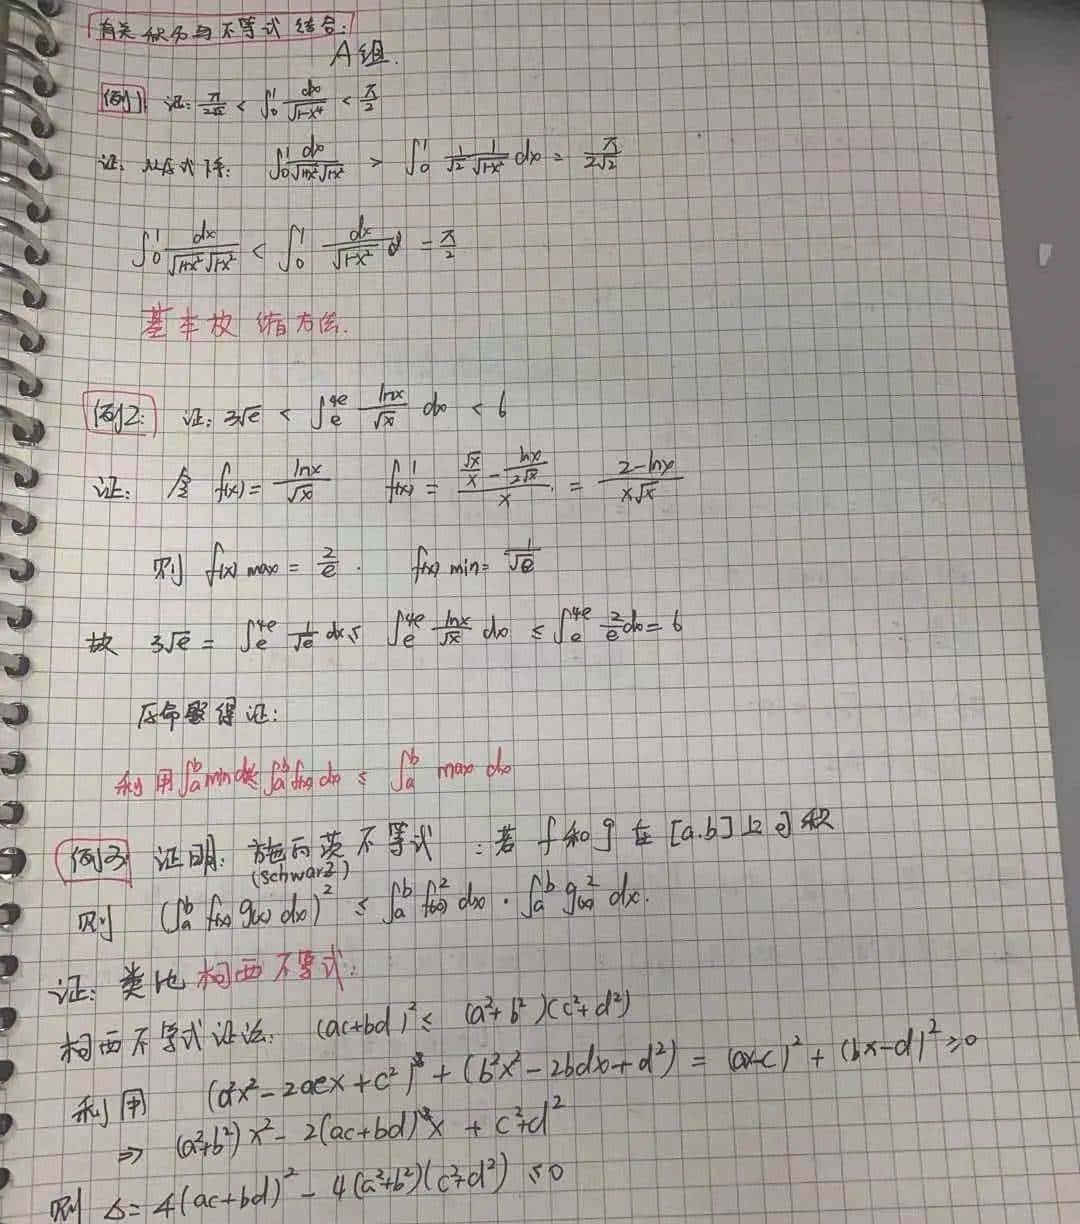 有关积分与不等式结合:
A组.
例1 证: π/(2√2) < ∫₀¹ dx/√(1-x⁴) < π/2
证: 从左式得: ∫₀¹ dx/(√(1+x²)√(1-x²)) > ∫₀¹ (1/√2)(1/√(1-x²)) dx = π/(2√2)
∫₀¹ dx/(√(1+x²)√(1-x²)) < ∫₀¹ dx/√(1-x²) d = π/2
基本放缩方法.
例2: 证: 3√e < ∫ₑ⁴ᵉ lnx/√x dx < 6
证: 令 f(x) = lnx/√x f'(x) = (√x/x - lnx/(2√x))/x = (2-lnx)/(x√x)
则 f(x) max = 2/e . f(x) min = 1/√e
故 3√e = ∫ₑ⁴ᵉ 1/√e dx ≤ ∫ₑ⁴ᵉ lnx/√x dx ≤ ∫ₑ⁴ᵉ 2/e dx = 6
原命题得证:
利用 ∫ₐᵇ min dx ≤ ∫ₐᵇ f(x) dx ≤ ∫ₐᵇ max dx
例3: 证明: 施瓦茨不等式 : 若 f 和 g 在 [a.b] 上可积
(schwarz)
则 (∫ₐᵇ f(x) g(x) dx)² ≤ ∫ₐᵇ f²(x) dx · ∫ₐᵇ g²(x) dx.
证: 类比柯西不等式:
柯西不等式证法: (ac+bd)² ≤ (a²+b²)(c²+d²)
利用 (a²x²-2acx+c²) + (b²x²-2bdx+d²) = (ax-c)² + (bx-d)² ≥0
⇒ (a²+b²)x² - 2(ac+bd)x + c²+d²
则 Δ = 4(ac+bd)² - 4(a²+b²)(c²+d²) ≤0